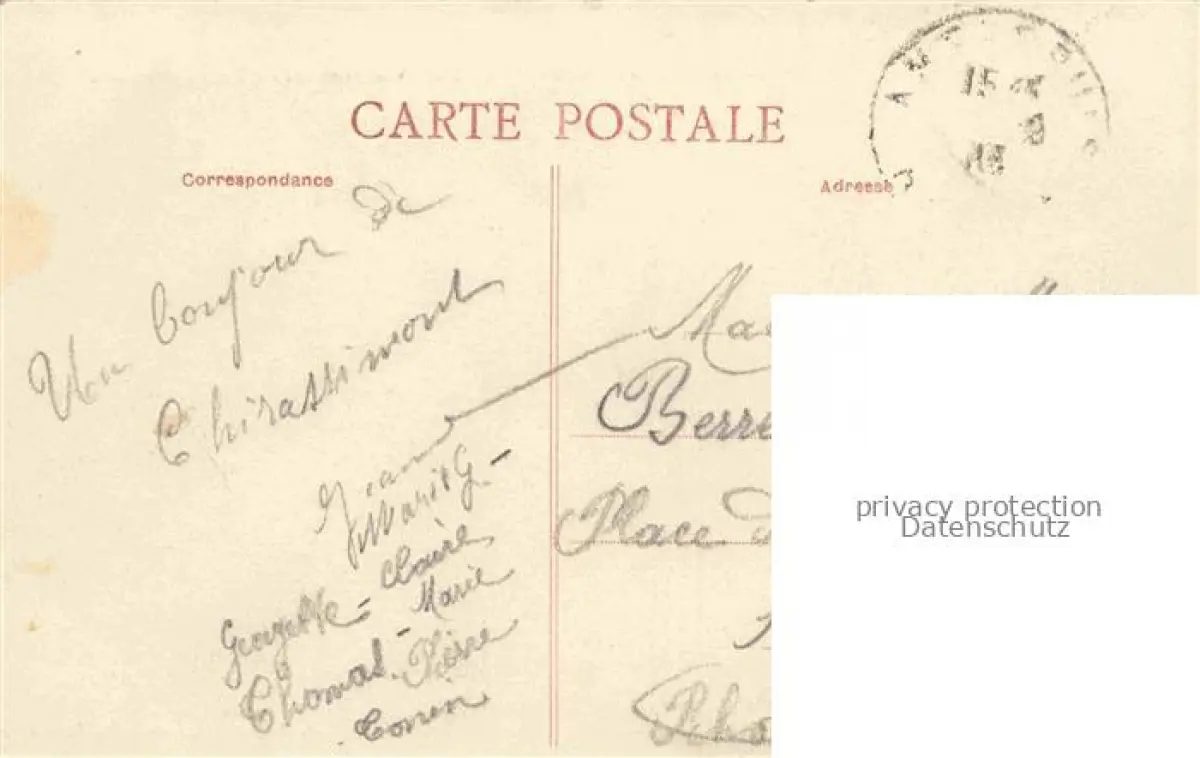 CARTE POSTALE
Correspondance
Adresse
15
Un bonjour de
Chirassimont
Jeanne
Marie G. -
Claire
Georgette - Marie
Thomas - Pierre
Mad
Berre
Place d
Rho
privacy protection
Datenschutz